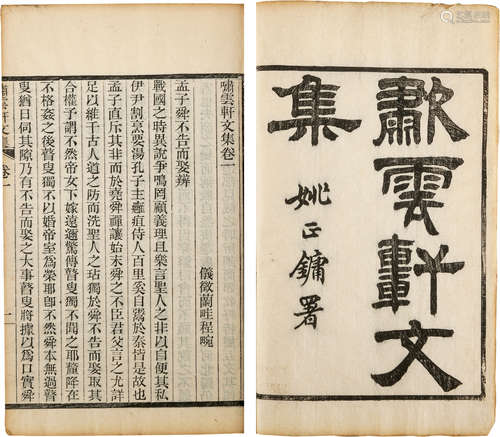 歗雲軒文
集
姚正鏞署
嘯雲軒文集卷一
儀徵蘭畦程畹
孟子舜不告而娶辨
戰國之時異說爭鳴罔顧義理且樂言聖人之非以自便其私
伊尹割烹要湯孔子主癰疽侍人百里奚自鬻於秦皆是故也
孟子直斥其非而於堯舜禪讓始末舜之不臣君父言之尤詳
足以維千古人道之防而洗聖人之玷獨於舜不告而娶取其
合權予謂不然帝女下嫁遠邇驚傳瞽叟獨不聞之耶釐降在
不格姦之後瞽叟獨不以婚帝室爲榮耶然舜本無過瞽
叟猶日伺其隙乃有不告而娶之大事瞽叟將據以爲口實舜
嘯雲軒文集 卷一 一